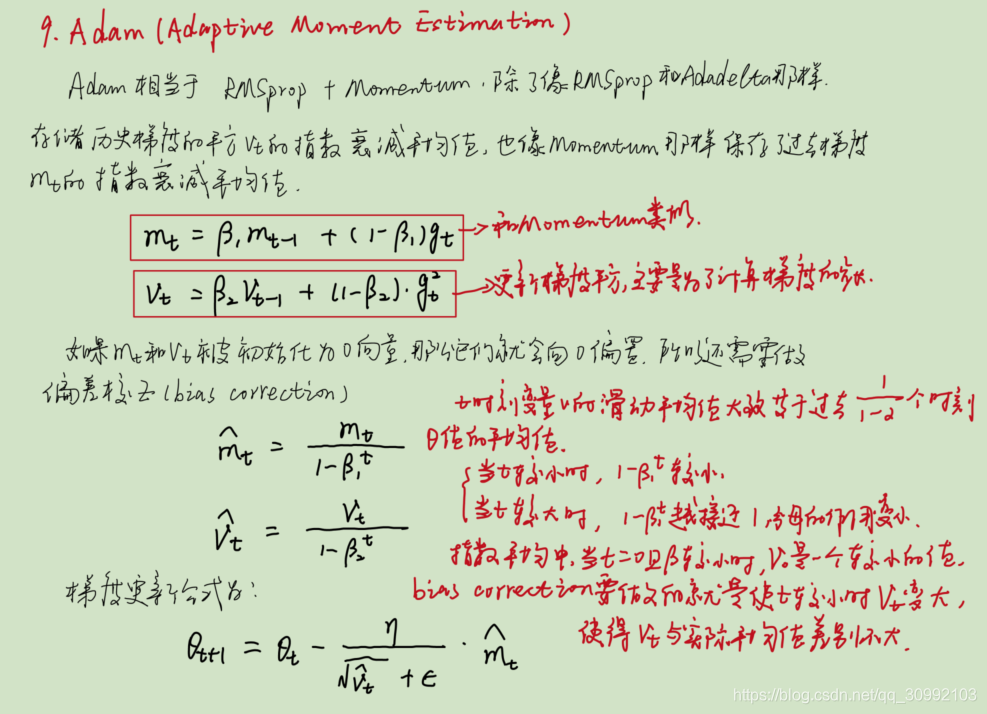 9. Adam (Adaptive Moment Estimation)
Adam 相当于 RMSprop + Momentum. 除了像RMSprop和Adadelta那样.
存储历史梯度的平方Vt的指数衰减平均值, 也像Momentum那样保存了过去梯度
mt的指数衰减平均值.
mt = β₁mt-1 + (1-β₁)gt → 和Momentum类似.
Vt = β₂Vt-1 + (1-β₂)·gt² → 更新梯度平方, 主要是为了计算梯度的
如果mt和Vt被初始化为0向量, 那么它们就会向0偏置. 所以还需要做
偏差校正 (bias correction)
t时刻变量v的滑动平均值大致等于过去 1/(1-α) 个时刻
θ值的平均值.
m̂t = mt / (1-β₁ᵗ)
当t较小时, 1-β₁ᵗ较小.
V̂t = Vt / (1-β₂ᵗ)
当t较大时, 1-βᵗ越接近1, 分母的作用变小.
指数平均中, 当t=0且β较小时, V₀是一个较小的值.
梯度更新公式为:
bias correction要做的就是使t较小时Vt变大,
使得Vt与实际平均值差别不大.
θt+1 = θt - η / (√V̂t + ϵ) · m̂t
https://blog.csdn.net/qq_30992103